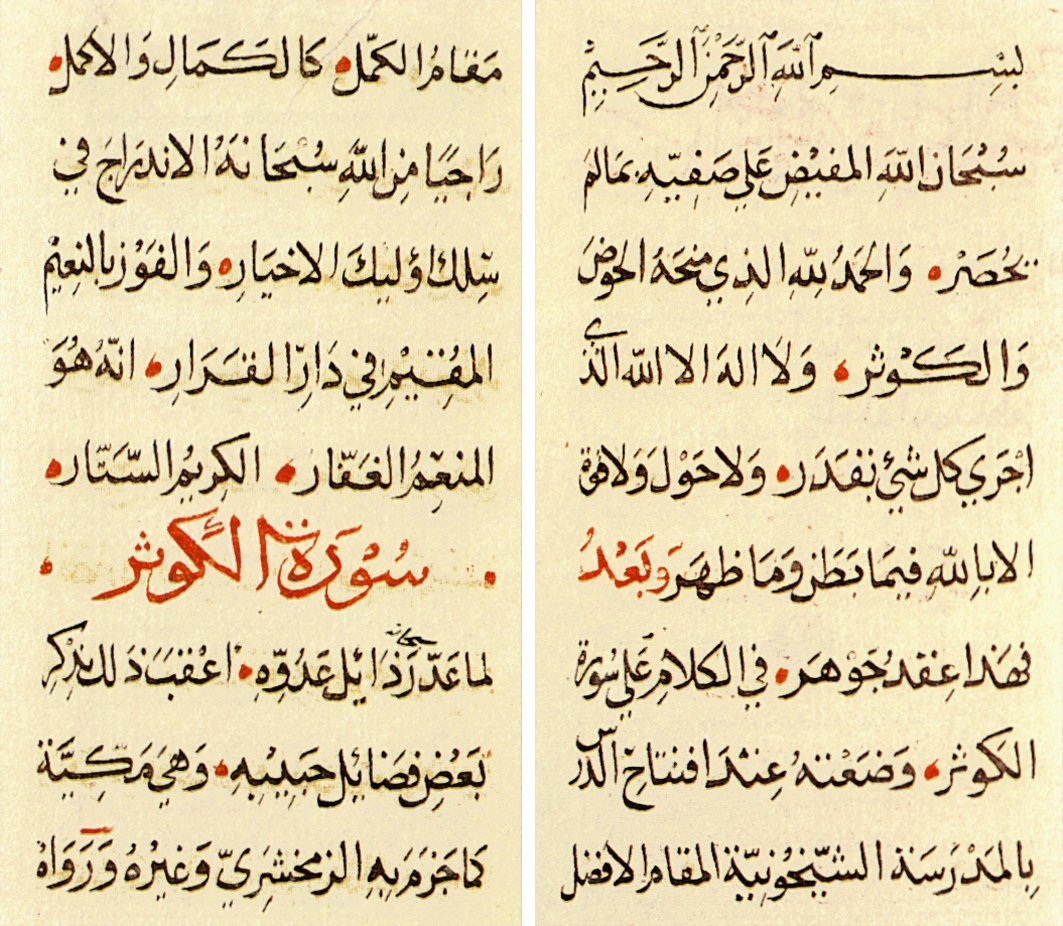 بِسْمِ ٱللَّهِ ٱلرَّحْمٰنِ ٱلرَّحِيمِ
سُبْحَانَ اللَّهِ المفيْضِ عَلي صَفِيّهِ بمَالمَ
يُحْصَرْ • وَالحمْدُ للّهِ الذِي منحَهُ الحوْضَ
وَالكَوْثر • وَلَا الهَ الا اللّه الّذي
اجْرَي كل شئ بقَدَر • وَلا حَوْلَ وَلا قوّة
الا باِللّهِ فيمَا بَطَنَ وَمَا ظهَرَ وَبَعْدُ
فهَذا عِقدُ جَوْهَر • في الكلامِ عَلي سُورة
الكوثر • وَضعْتهُ عِنْدَ افتتاحِ الدّرس
بِالمدْرَسَة الشيّخوُنيّة المقام الافضل
مَقامُ الكمّل • كالكَمَالِ وَالاكمل •
رَاجيًا مِنَ اللّهِ سُبْحَانهُ الاندرَاجَ في
سِلك اؤليكَ الاخيَارِ • وَالفَوْز بالنعِيْم
المُقِيْمِ في دَارِ القَرَارِ • انّهُ هُوَ
المنعِمُ الغَفّار • الكرِيمُ السّتَّار •
• سُوْرَةُ الكَوثر •
لما عَدّدَ سبحانه رَذائِل عَدُوّهِ • اعْقبَ ذَلك بذِكْرِ
بَعْضِ فضَائِل حَبِيْبِهِ • وَهيَ مَكِيَّة
كما جَزمَ بهِ الزمخشَرِيّ وَغيْرُهُ وَرَوَاهُ